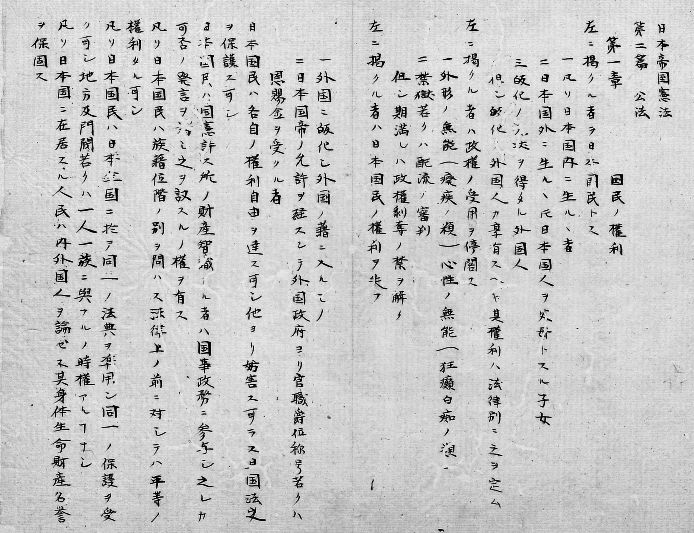 日本帝国憲法
第二篇 公法
第一章 国民ノ権利
左ニ掲クル者ヲ日本国民トス
一凡ソ日本国内ニ生ルヽ者
二日本国外ニ生ルヽ𪜈日本国人ヲ父母トスル子女
三帰化ノ免状ヲ得タル外国人
但シ帰化ノ外国人カ享有スヘキ其権利ハ法律別ニ之ヲ定ム
左ニ掲クル者ハ政権ノ受用ヲ停閣ス
一外形ノ無能(廃疾ノ類)心性ノ無能(狂癲白痴ノ類)
二禁獄若クハ配流ノ審判
但シ期満レハ政権剥奪ノ禁ヲ解ク
左ニ掲クル者ハ日本国民ノ権利ヲ失フ
一外国ニ帰化シ外国ノ籍ニ入ルモノ
二日本国帝ノ允許ヲ経スシテ外国政府ヨリ官職爵位称号若クハ
恩賜金ヲ受クル者
日本国民ハ各自ノ権利自由ヲ達ス可シ他ヨリ妨害ス可ラス且国法之
ヲ保護ス可シ
日本国民ハ国憲許ス所ノ財産智識アル者ハ国事政務ニ参与シ之レカ
可否ノ発言ヲ為シ之ヲ議スルノ権ヲ有ス
凡ソ日本国民ハ族籍位階ノ別ヲ問ハス法律上ノ前ニ対シテハ平等ノ
権利タル可シ
凡ソ日本国民ハ日本全国ニ於テ同一ノ法典ヲ準用シ同一ノ保護ヲ受
ク可シ地方及門閥若クハ一人一族ニ与フルノ特権アルコトナシ
凡ソ日本国ニ在居スル人民ハ内外国人ヲ論セス其身体生命財産名誉
ヲ保固ス